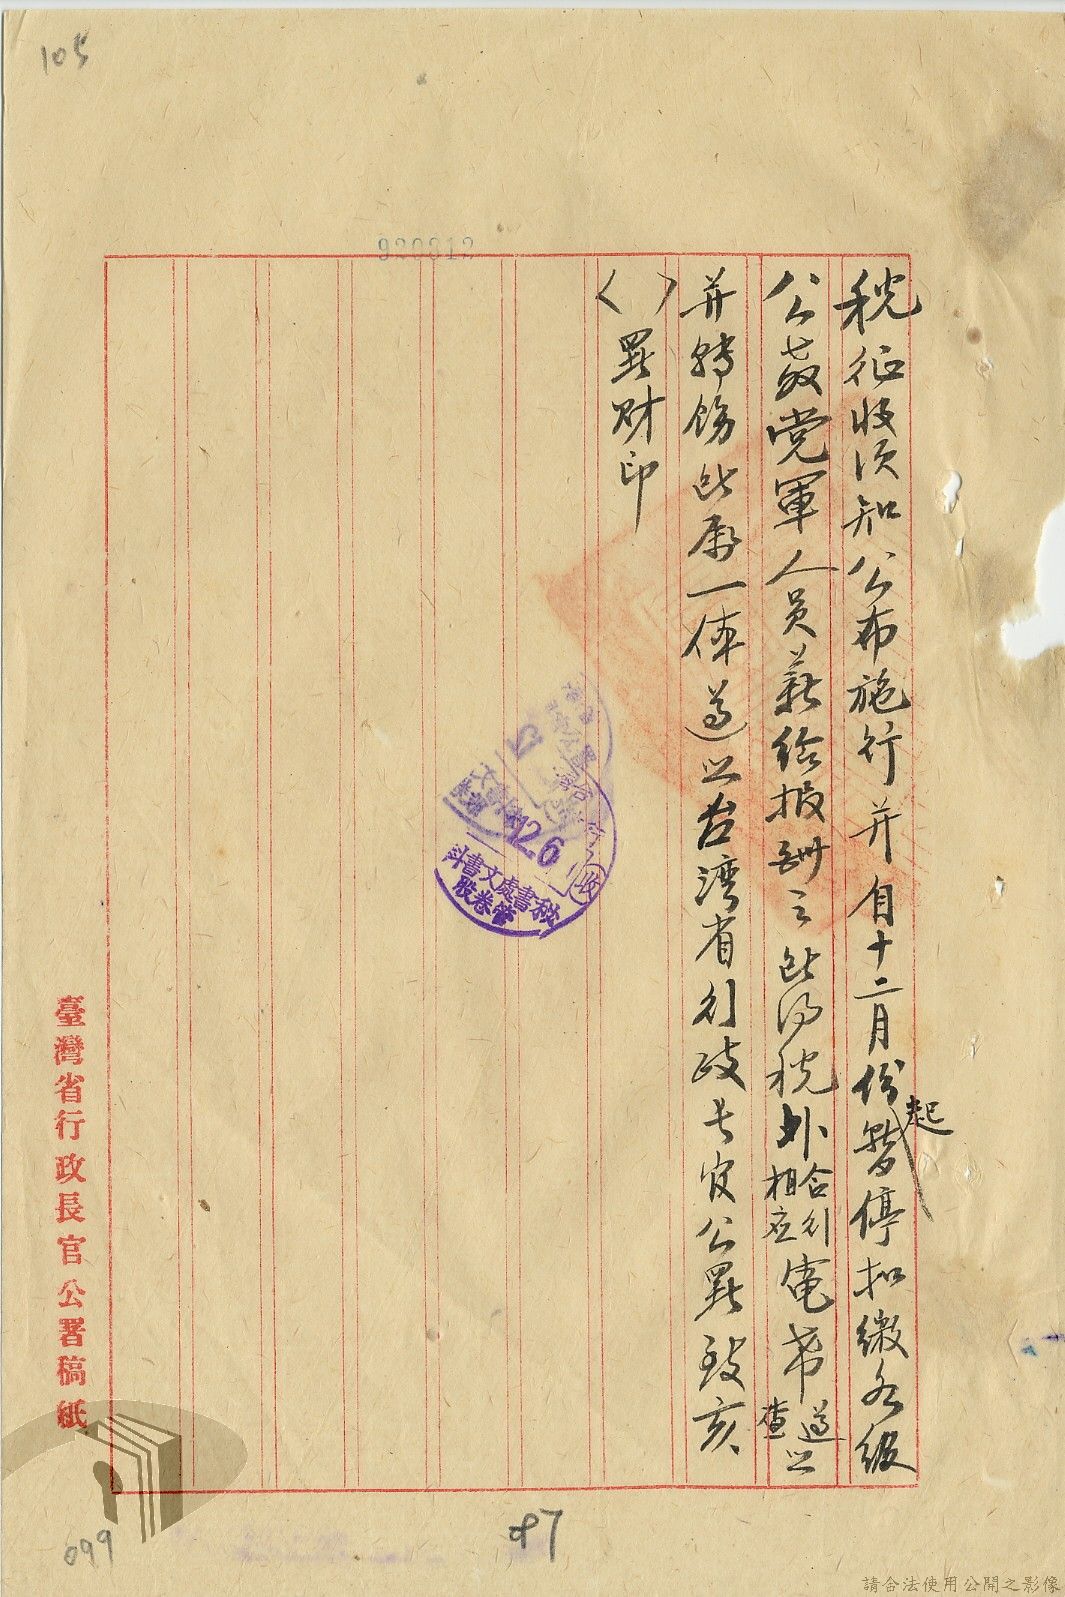 105
920312
稅征收須知公布施行并自十二月份起暫停扣繳各級
公教党軍人員薪給报酬之所得税外合行相应電希遵照查照
并轉飭所屬一体遵照台湾省行政長官公署致亥
（　）署財印
126
收
秘書處文書科
管卷股
臺灣省行政長官公署稿紙
97
099
請合法使用公開之影像